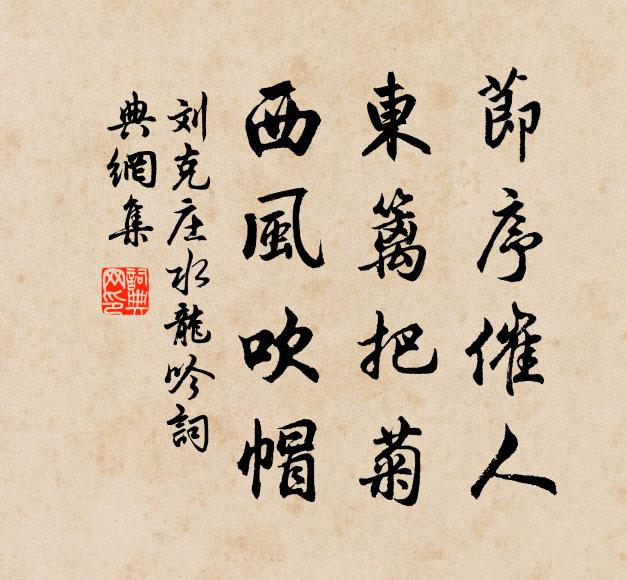 節序催人
東籬把菊
西風吹帽
刘克庄水龍吟詞
典網集
詞典網印